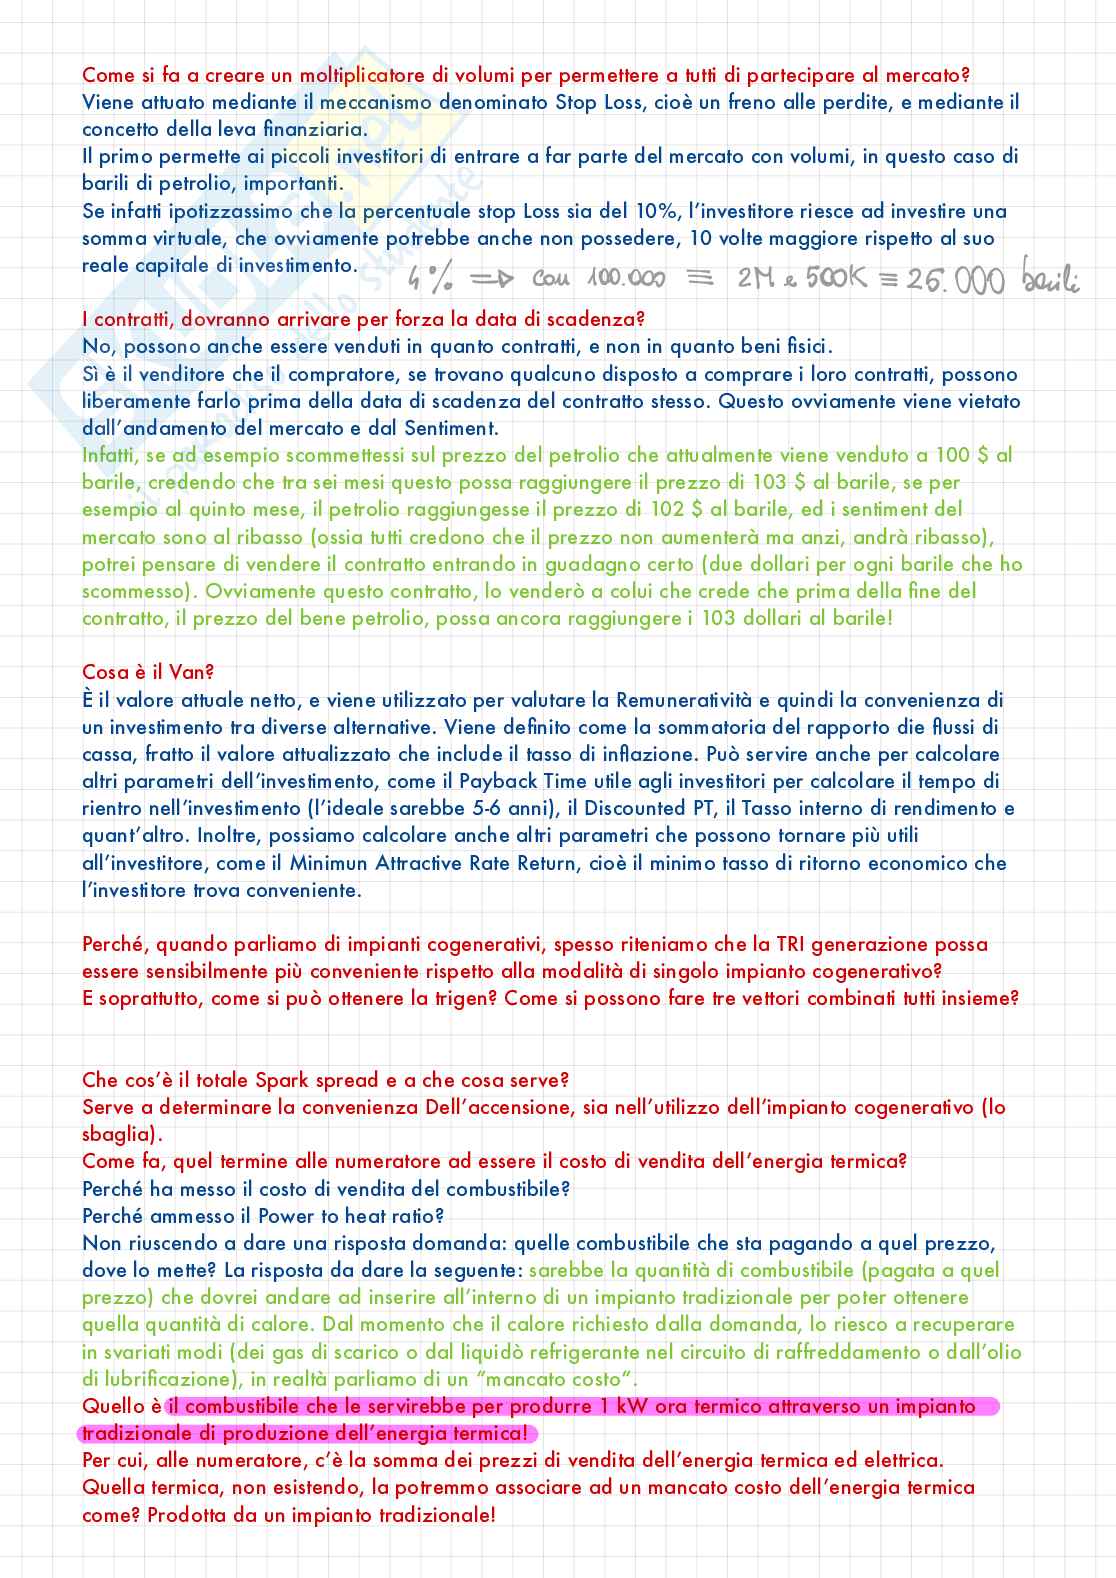 Come si fa a creare un moltiplicatore di volumi per permettere a tutti di partecipare al mercato?
Viene attuato mediante il meccanismo denominato Stop Loss, cioè un freno alle perdite, e mediante il
concetto della leva finanziaria.
Il primo permette ai piccoli investitori di entrare a far parte del mercato con volumi, in questo caso di
barili di petrolio, importanti.
Se infatti ipotizzassimo che la percentuale stop Loss sia del 10%, l'investitore riesce ad investire una
somma virtuale, che ovviamente potrebbe anche non possedere, 10 volte maggiore rispetto al suo
reale capitale di investimento.
4% => con 100.000 ≡ 2M e 500K ≡ 25.000 barili
I contratti, dovranno arrivare per forza la data di scadenza?
No, possono anche essere venduti in quanto contratti, e non in quanto beni fisici.
Sì è il venditore che il compratore, se trovano qualcuno disposto a comprare i loro contratti, possono
liberamente farlo prima della data di scadenza del contratto stesso. Questo ovviamente viene vietato
dall'andamento del mercato e dal Sentiment.
Infatti, se ad esempio scommettessi sul prezzo del petrolio che attualmente viene venduto a 100 $ al
barile, credendo che tra sei mesi questo possa raggiungere il prezzo di 103 $ al barile, se per
esempio al quinto mese, il petrolio raggiungesse il prezzo di 102 $ al barile, ed i sentiment del
mercato sono al ribasso (ossia tutti credono che il prezzo non aumenterà ma anzi, andrà ribasso),
potrei pensare di vendere il contratto entrando in guadagno certo (due dollari per ogni barile che ho
scommesso). Ovviamente questo contratto, lo venderò a colui che crede che prima della fine del
contratto, il prezzo del bene petrolio, possa ancora raggiungere i 103 dollari al barile!
Cosa è il Van?
È il valore attuale netto, e viene utilizzato per valutare la Remuneratività e quindi la convenienza di
un investimento tra diverse alternative. Viene definito come la sommatoria del rapporto die flussi di
cassa, fratto il valore attualizzato che include il tasso di inflazione. Può servire anche per calcolare
altri parametri dell'investimento, come il Payback Time utile agli investitori per calcolare il tempo di
rientro nell'investimento (l'ideale sarebbe 5-6 anni), il Discounted PT, il Tasso interno di rendimento e
quant'altro. Inoltre, possiamo calcolare anche altri parametri che possono tornare più utili
all'investitore, come il Minimun Attractive Rate Return, cioè il minimo tasso di ritorno economico che
l'investitore trova conveniente.
Perché, quando parliamo di impianti cogenerativi, spesso riteniamo che la TRI generazione possa
essere sensibilmente più conveniente rispetto alla modalità di singolo impianto cogenerativo?
E soprattutto, come si può ottenere la trigen? Come si possono fare tre vettori combinati tutti insieme?
Che cos'è il totale Spark spread e a che cosa serve?
Serve a determinare la convenienza Dell'accensione, sia nell'utilizzo dell'impianto cogenerativo (lo
sbaglia).
Come fa, quel termine alle numeratore ad essere il costo di vendita dell'energia termica?
Perché ha messo il costo di vendita del combustibile?
Perché ammesso il Power to heat ratio?
Non riuscendo a dare una risposta domanda: quelle combustibile che sta pagando a quel prezzo,
dove lo mette? La risposta da dare la seguente: sarebbe la quantità di combustibile (pagata a quel
prezzo) che dovrei andare ad inserire all'interno di un impianto tradizionale per poter ottenere
quella quantità di calore. Dal momento che il calore richiesto dalla domanda, lo riesco a recuperare
in svariati modi (dei gas di scarico o dal liquidò refrigerante nel circuito di raffreddamento o dall'olio
di lubrificazione), in realtà parliamo di un "mancato costo".
Quello è il combustibile che le servirebbe per produrre 1 kW ora termico attraverso un impianto
tradizionale di produzione dell'energia termica!
Per cui, alle numeratore, c'è la somma dei prezzi di vendita dell'energia termica ed elettrica.
Quella termica, non esistendo, la potremmo associare ad un mancato costo dell'energia termica
come? Prodotta da un impianto tradizionale!